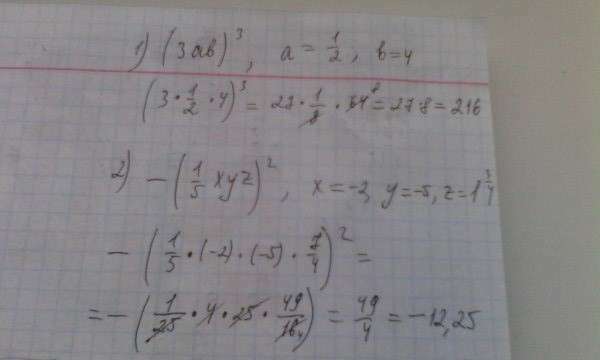 1) (3ab)³, a = 1/2, b = 4
(3 · 1/2 · 4)³ = 27 · 1/8 · 64⁸ = 27 · 8 = 216
2) − (1/5 xyz)², x = −2, y = −5, z = 1 3/4
− (1/5 · (−2) · (−5) · 7/4)² =
= − (1/25 · 4 · 25 · 49/16₄) = 49/4 = −12,25